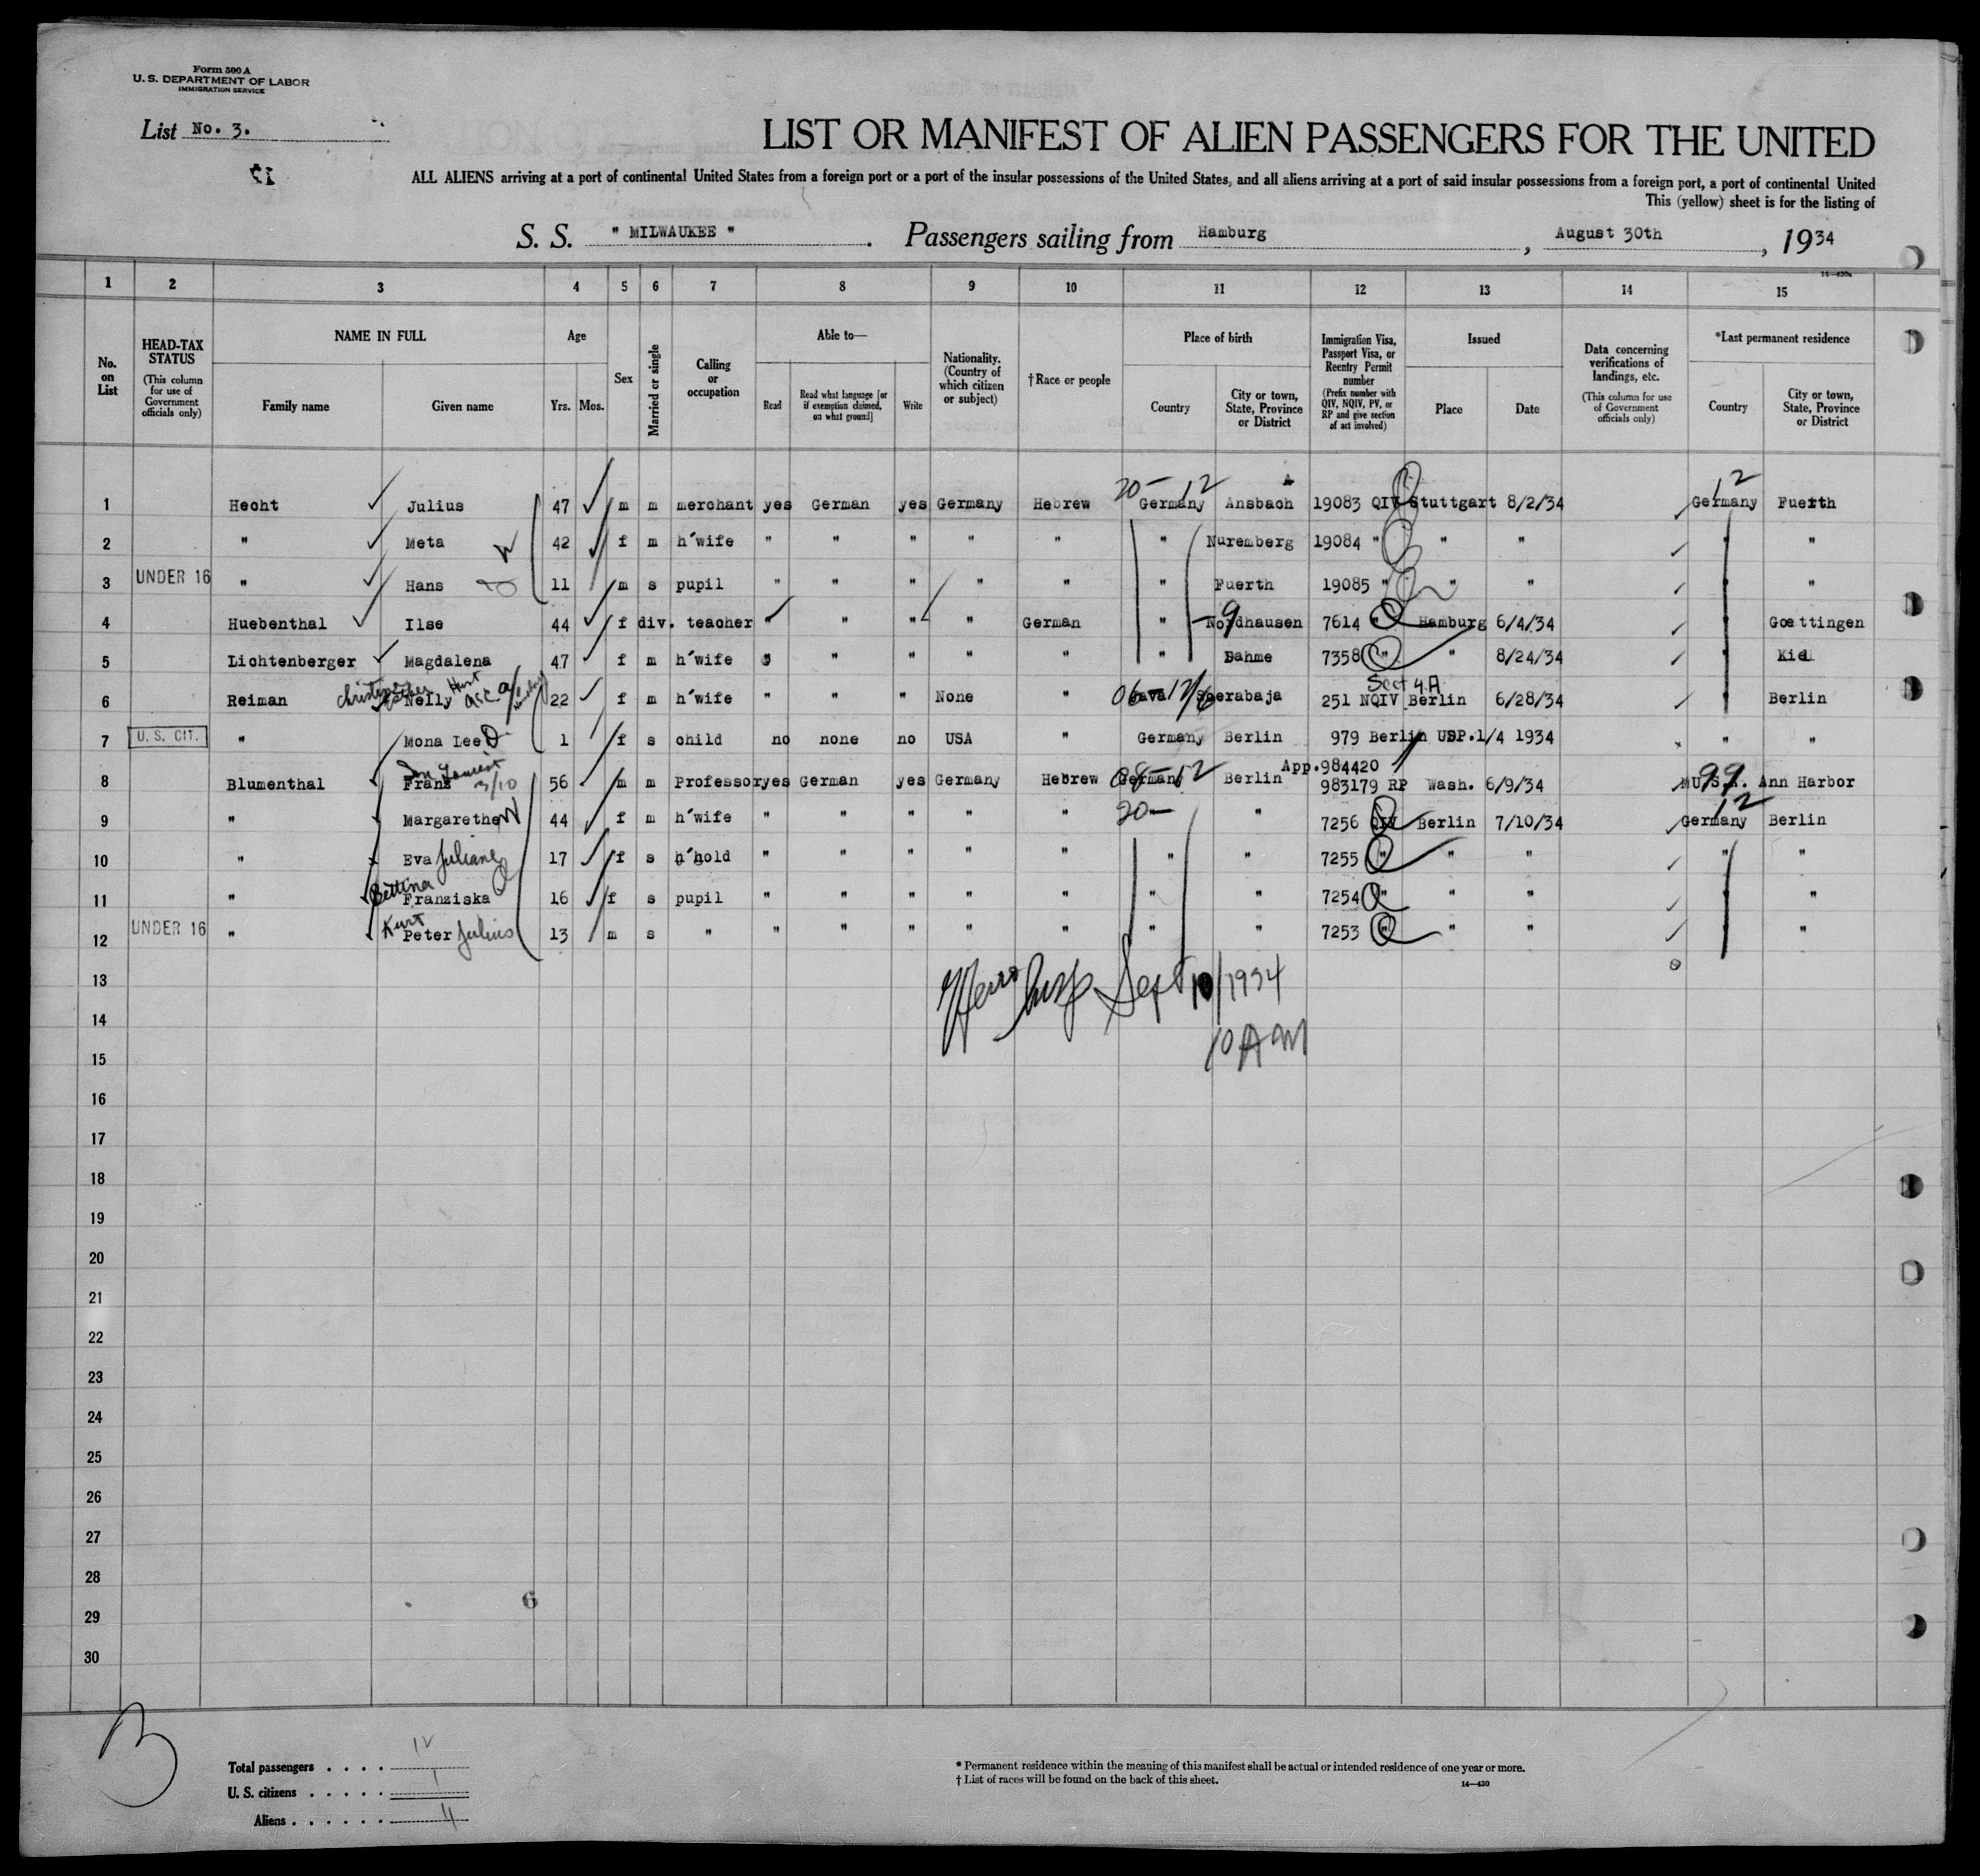 Form 500 A
U. S. DEPARTMENT OF LABOR
IMMIGRATION SERVICE
List No. 3.
LIST OR MANIFEST OF ALIEN PASSENGERS FOR THE UNITED
ALL ALIENS arriving at a port of continental United States from a foreign port or a port of the insular possessions of the United States, and all aliens arriving at a port of said insular possessions from a foreign port, a port of continental United
This (yellow) sheet is for the listing of
S. S. " MILWAUKEE " . Passengers sailing from Hamburg , August 30th , 1934
14—430a
1 2 3 4 5 6 7 8 9 10 11 12 13 14 15
No. on List
HEAD-TAX STATUS (This column for use of Government officials only)
NAME IN FULL
Family name Given name
Age
Yrs. Mos.
Sex
Married or single
Calling or occupation
Able to—
Read
Read what language [or if exemption claimed, on what ground]
Write
Nationality. (Country of which citizen or subject)
†Race or people
Place of birth
Country
City or town, State, Province or District
Immigration Visa, Passport Visa, or Reentry Permit number (Prefix number with QIV, NQIV, PV, or RP and give section of act involved)
Issued
Place Date
Data concerning verifications of landings, etc. (This column for use of Government officials only)
*Last permanent residence
Country
City or town, State, Province or District
20- 12 12
1 Hecht Julius 47 m m merchant yes German yes Germany Hebrew Germany Ansbach 19083 QIV Stuttgart 8/2/34 Germany Fuerth
2 " Meta W 42 f m h'wife " " " " " " Nuremberg 19084 " " " " "
3 UNDER 16 " Hans 11 m s pupil " " " " " " Fuerth 19085 " " " " "
4 Huebenthal Ilse 44 f div. teacher " " " " German " 9 Nordhausen 7614 " Hamburg 6/4/34 " Goettingen
5 Lichtenberger Magdalena 47 f m h'wife " " " " " " Dahme 7358 " " 8/24/34 " Kiel
Sect 4A
6 Reiman Christine Nelly 22 f m h'wife " " " None " Java Soerabaja 251 NQIV Berlin 6/28/34 " Berlin
7 U. S. CIT. " Mona Lee 1 f s child no none no USA " Germany Berlin 979 Berlin USP.1/4 1934 " "
App.984420
8 Blumenthal Franz 3/10 56 m m Professor yes German yes Germany Hebrew Germany Berlin 983179 RP Wash. 6/9/34 U.S.A. 99 Ann Harbor
20- 12
9 " Margarethe W 44 f m h'wife " " " " " " 7256 QIV Berlin 7/10/34 Germany Berlin
10 " Eva Juliane 17 f s h'hold " " " " " " " 7255 " " " " "
11 " Bettina Franziska 16 f s pupil " " " " " " " 7254 " " " " "
12 UNDER 16 " Kurt Peter Julius 13 m s " " " " " " " " 7253 " " " " "
13 Sept 10/1934
14
10 AM
15
16
17
18
19
20
21
22
23
24
25
26
27
28
6
29
30
B
Total passengers . . . . 12
U. S. citizens . . . . . 1
Aliens . . . . . . 11
* Permanent residence within the meaning of this manifest shall be actual or intended residence of one year or more.
† List of races will be found on the back of this sheet.
14—430